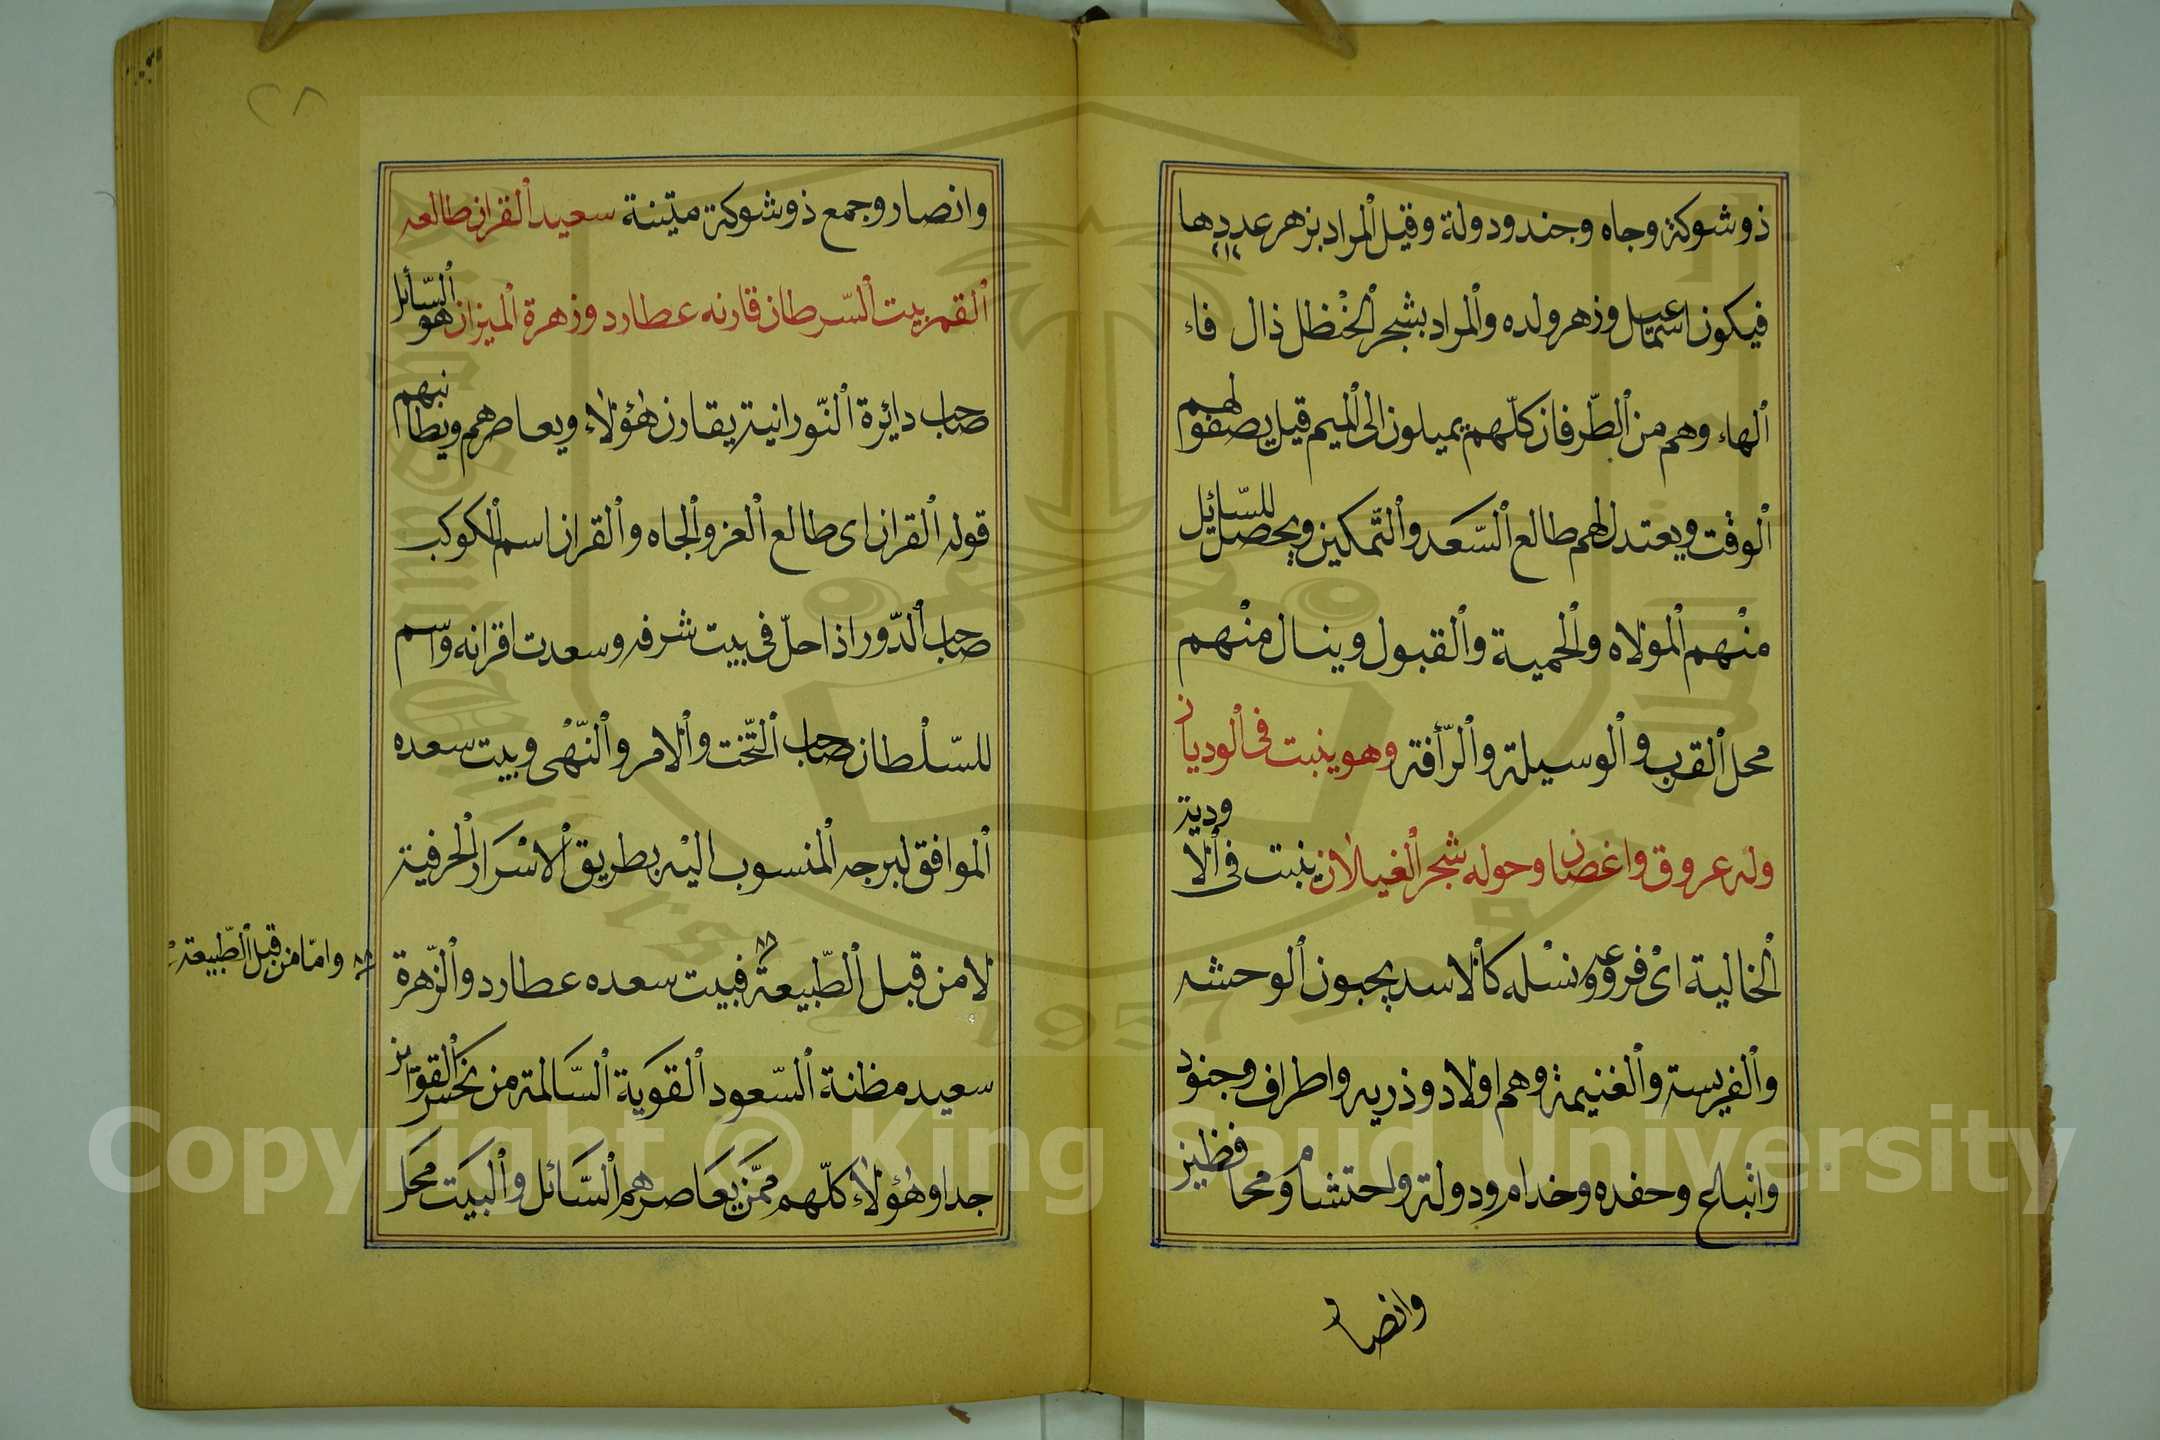 ذو شوكة وجاه وجند ودولة وقيل المراد بزهر عددها
٢١٢
فيكون اسماعيل وزهر ولده والمراد بشجر الحنظل ذال فاء
الهاء وهم من الطرفان كلّهم يميلون الى الميم قيل يصفوا لهم
الوقت ويعتدل لهم طالع السّعد والتّمكين ويحصل للسّائل
منهم المولاه والحمية والقبول وينال منهم
محل القرب والوسيلة والرّأفة وهو ينبت فى الوديان
وله عروق واغصان وحوله شجر الغيلان ينبت فى الاودية
الخالية اى فروعه ونسله كالاسد يحبون الوحشه
والفريسة والغنيمة وهم اولاد وذريه واطراف وجنود
واتباع وحفده وخدام ودولة واحتشام ومحافظين
وانصار
٢٨
وانصار وجمع ذو شوكة متينة سعيد القران طالعه
القمر بيت السّرطان قارنه عطارد وزهرة الميزان هو السّائل
صاحب دايرة النّورانية يقارن هؤلاء ويعاصرهم ويطالبهم
قوله القران اى طالع العز والجاه والقران اسم الكوكب
صاحب الدّور اذا حلّ فى بيت شرفه وسعدت اقرانه واسم
للسّلطان صاحب التّخت والامر والنّهى وبيت سعده
الموافق لبرجه المنسوب اليه بطريق الاسرار الحرفية
لا من قبل الطّبيعة فبيت سعده عطارد والزّهرة
وامّا من قبل الطّبيعة
سعيد مظنة السّعود القوية السّالمة من نحس القوانين
جدا وهؤلاء كلّهم ممّن يعاصرهم السّائل والبيت محل
Copyright © King Saud University
1957